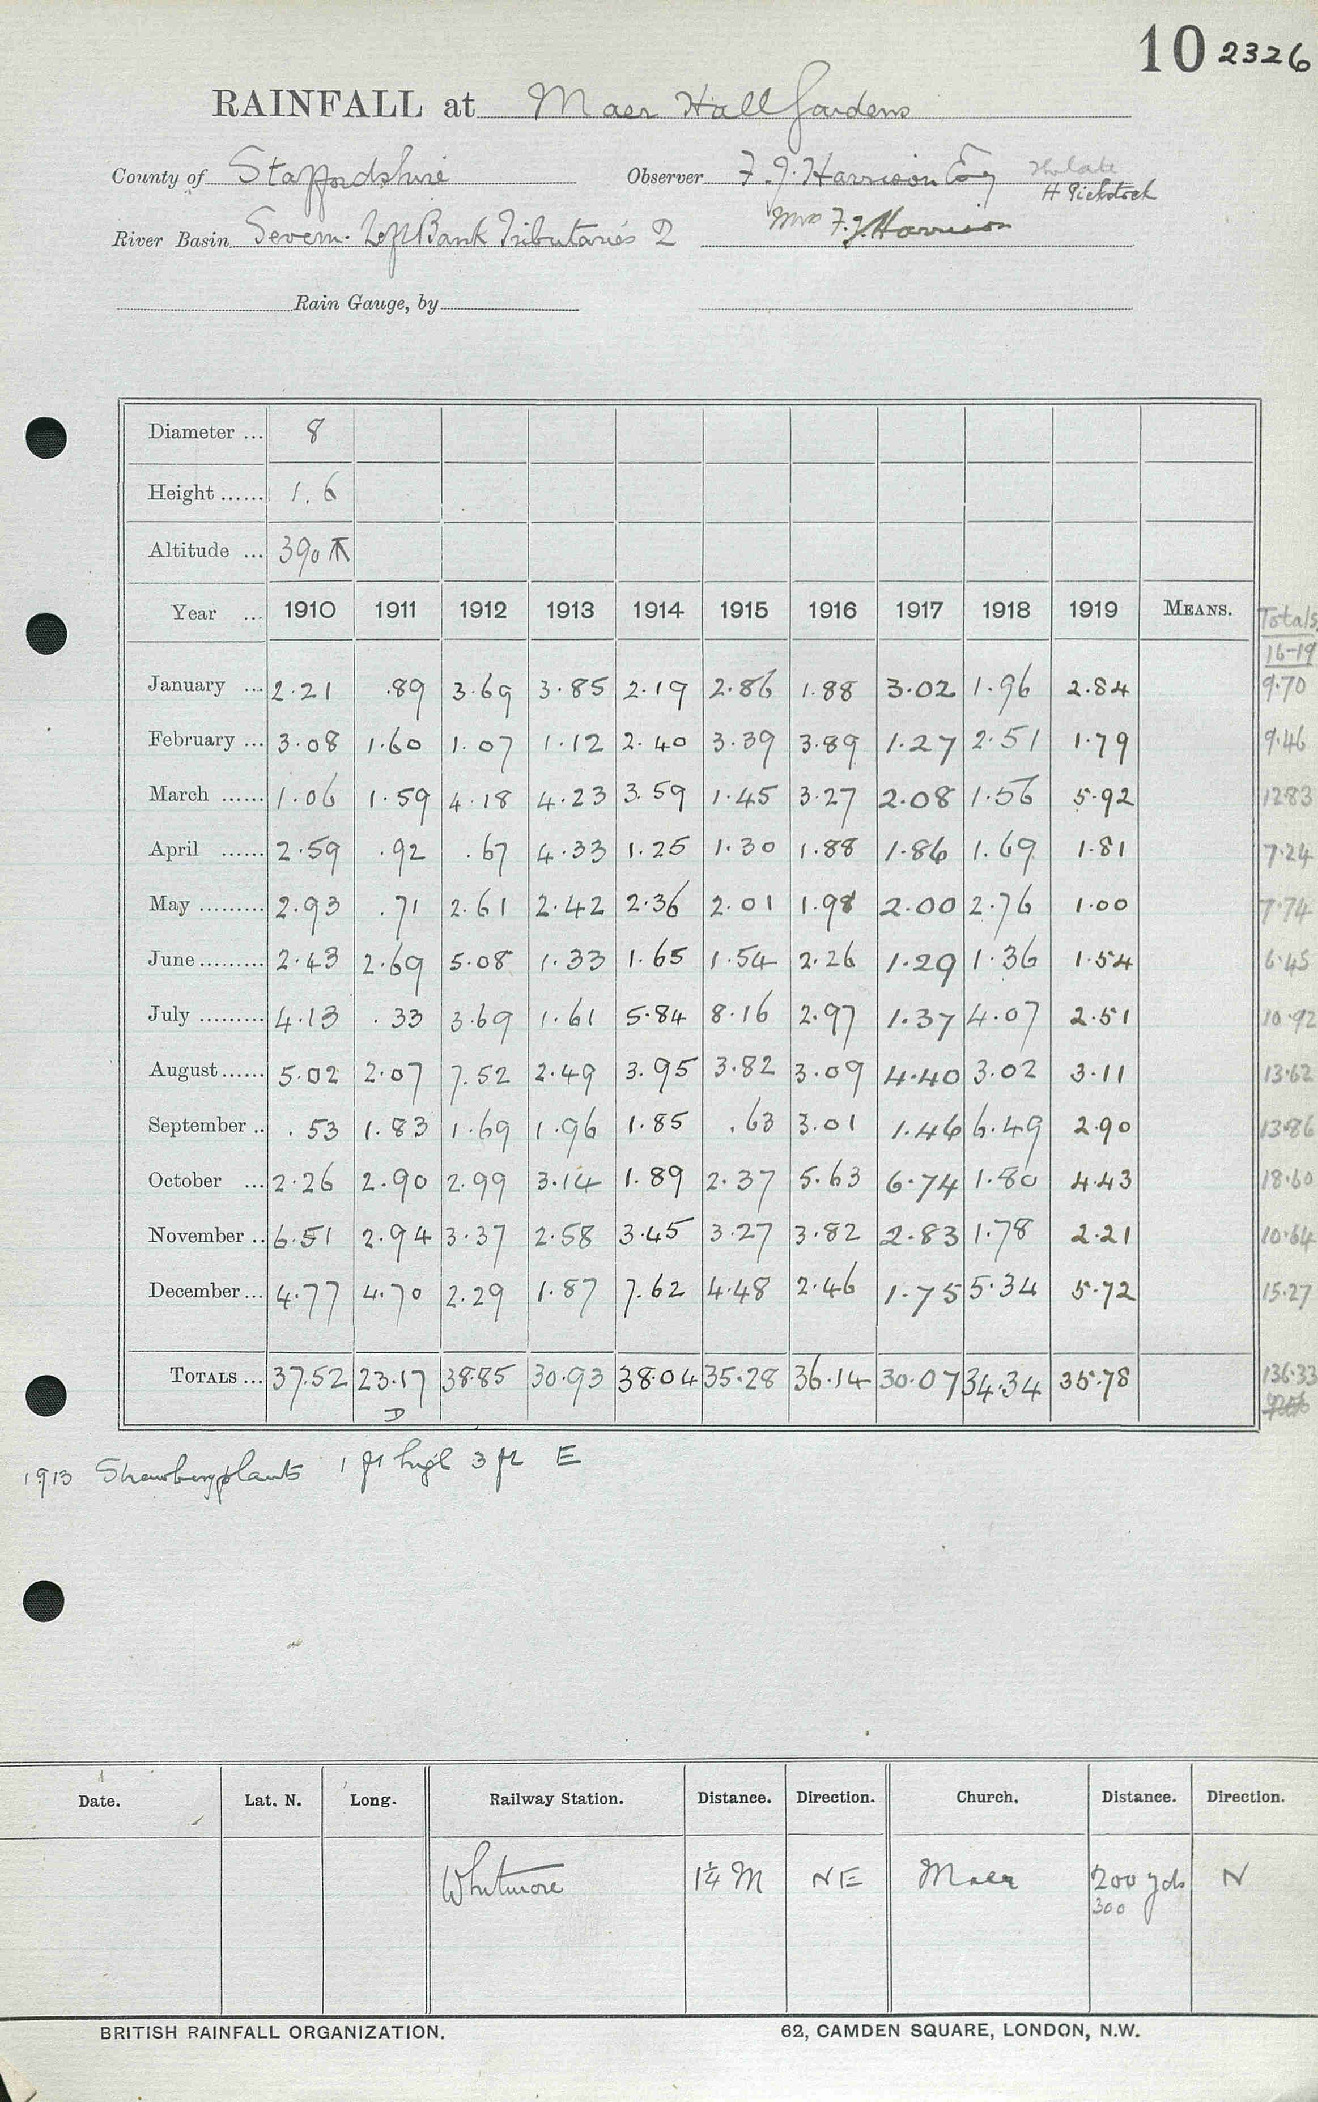 10 2326
RAINFALL at Maer Hall Gardens
County of Staffordshire Observer F. J. Harrison Esq The late
H Pickstock
River Basin Severn. Left Bank Tributaries 2 Mrs F. J. Harrison
Rain Gauge, by
Diameter ... 8
Height ...... 1.6
Altitude ... 390
Year ... 1910 1911 1912 1913 1914 1915 1916 1917 1918 1919 MEANS. Totals
16-19
January ... 2.21 .89 3.69 3.85 2.19 2.86 1.88 3.02 1.96 2.84 9.70
February ... 3.08 1.60 1.07 1.12 2.40 3.39 3.89 1.27 2.51 1.79 9.46
March ...... 1.06 1.59 4.18 4.23 3.59 1.45 3.27 2.08 1.56 5.92 1283
April ...... 2.59 .92 .67 4.33 1.25 1.30 1.88 1.86 1.69 1.81 7.24
May ......... 2.93 .71 2.61 2.42 2.36 2.01 1.98 2.00 2.76 1.00 7.74
June ......... 2.43 2.69 5.08 1.33 1.65 1.54 2.26 1.29 1.36 1.54 6.45
July ......... 4.13 .33 3.69 1.61 5.84 8.16 2.97 1.37 4.07 2.51 10.92
August ...... 5.02 2.07 7.52 2.49 3.95 3.82 3.09 4.40 3.02 3.11 13.62
September .. .53 1.83 1.69 1.96 1.85 .63 3.01 1.46 6.49 2.90 13.86
October ... 2.26 2.90 2.99 3.14 1.89 2.37 5.63 6.74 1.80 4.43 18.60
November .. 6.51 2.94 3.37 2.58 3.45 3.27 3.82 2.83 1.78 2.21 10.64
December ... 4.77 4.70 2.29 1.87 7.62 4.48 2.46 1.75 5.34 5.72 15.27
TOTALS ... 37.52 23.17 38.85 30.93 38.04 35.28 36.14 30.07 34.34 35.78 136.33
D
1913 Strawberry plants 1 ft high 3 ft E
Date. Lat. N. Long. Railway Station. Distance. Direction. Church. Distance. Direction.
Whitmore 1¼ M NE Maer 200 yds N
300
BRITISH RAINFALL ORGANIZATION. 62, CAMDEN SQUARE, LONDON, N.W.